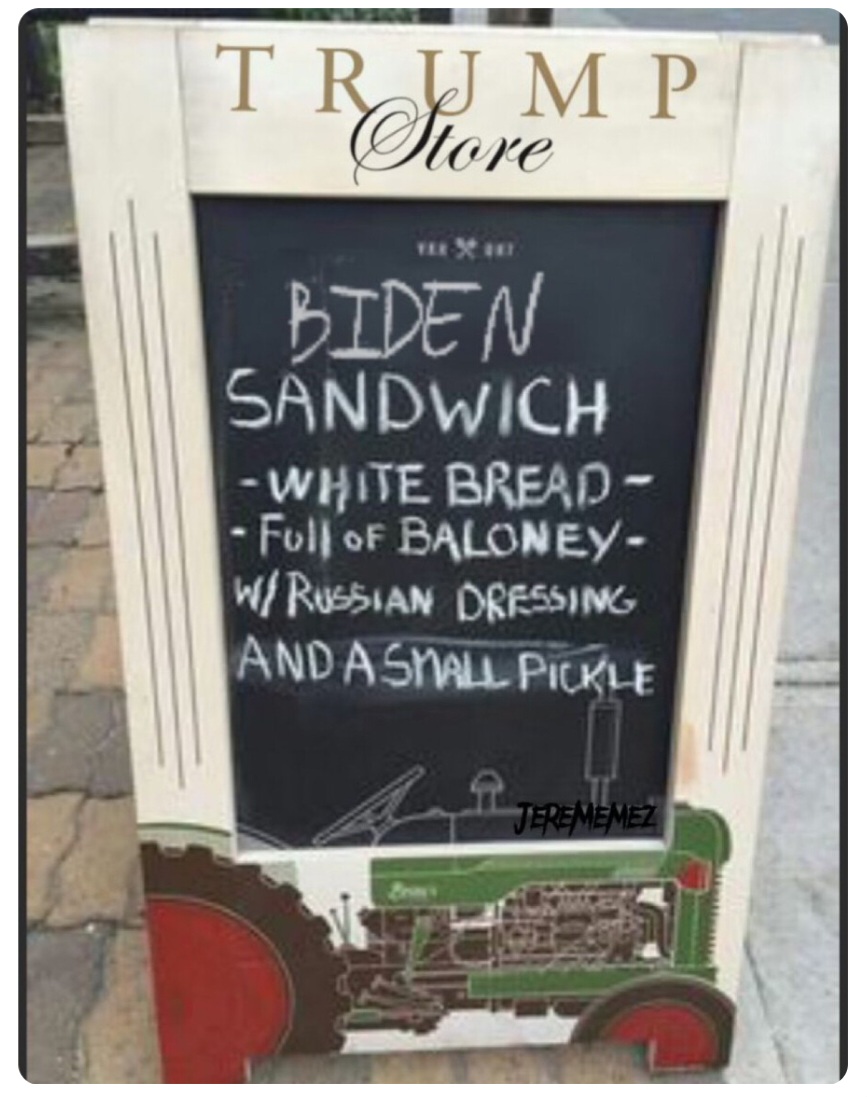 TRUMP
Store
BIDEN
SANDWICH
-WHITE BREAD-
-Full oF BALONEY-
W/ RUSSIAN DRESSING
AND A SMALL PICKLE
JEREMEMEZ